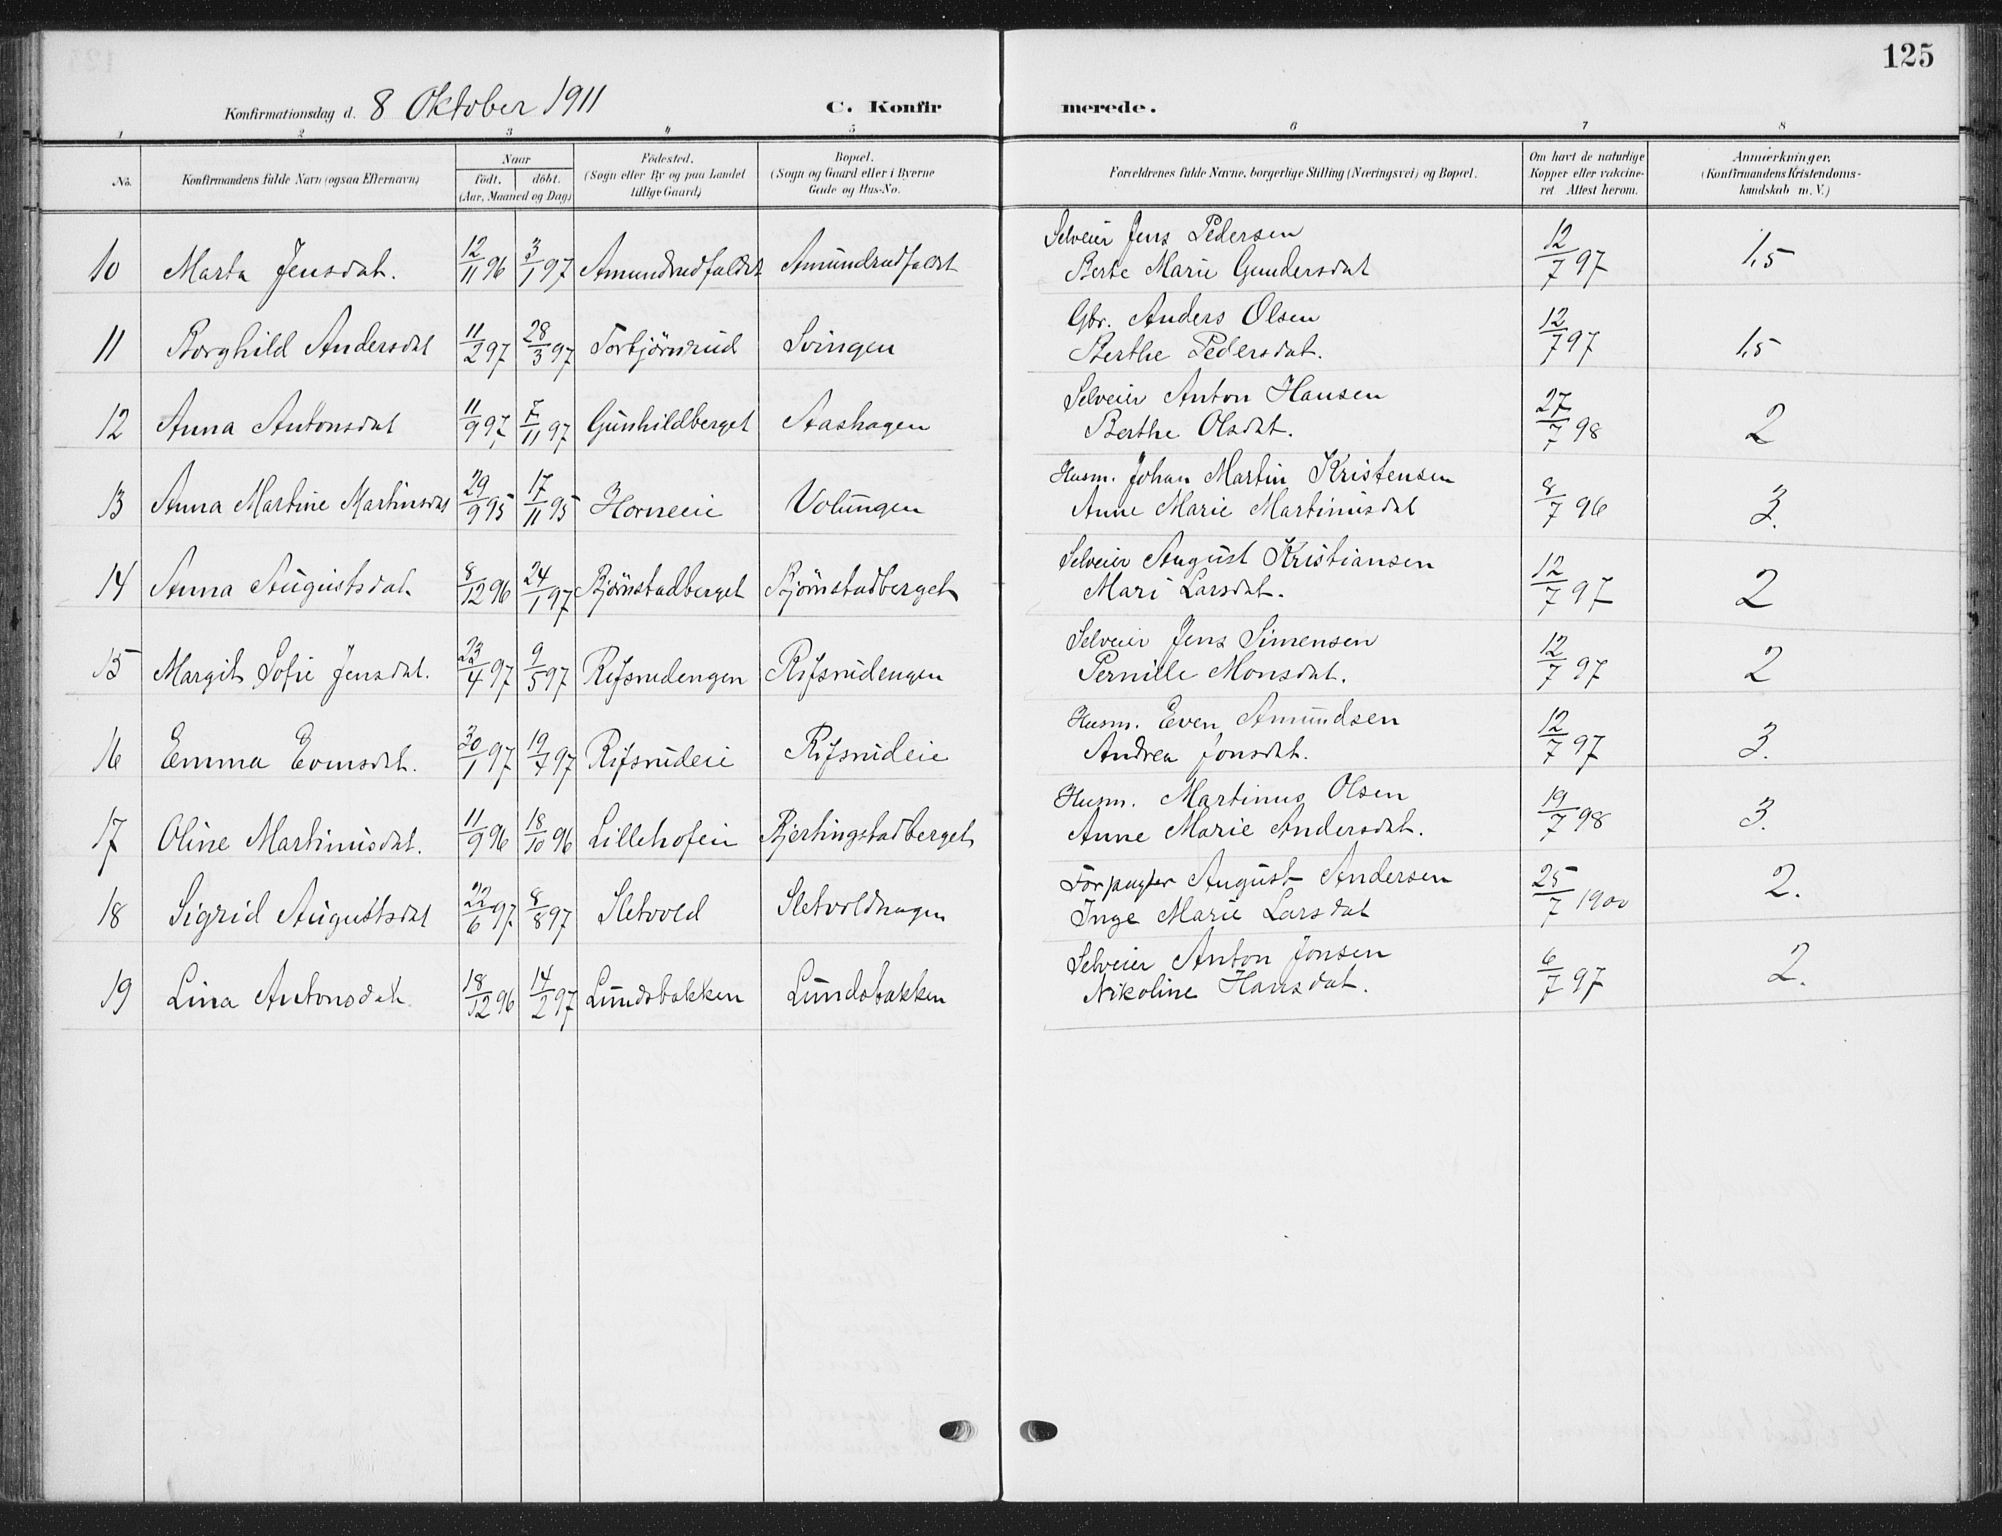 125
Konfirmationsdag d. 8 Oktober 1911 C. Konfir merede.
1 2 3 4 5 6 7 8
No. Konfirmandens fulde Navn (ogsaa Efternavn) Naar født. døbt. (Aar, Maaned og Dag) Fødested. (Sogn eller By og paa Landet tillige Gaard) Bopæl. (Sogn og Gaard eller i Byerne Gade og Hus-No. Forældrenes fulde Navne, borgerlige Stilling (Næringsvei) og Bopæl. Om havt de naturlige Kopper eller vakcineret Attest herom. Anmærkninger. (Konfirmandens Kristendomskundskab m. V.)
10 Marta Jensdat. 12/11 96 3/1 97 Amundrudfaldet Amundrudfaldt Selveier Jens Pedersen 12/7 97 1,5
Berte Marie Gundersdat
11 Borghild Andersdat 11/2 97 28/3 97 Torbjörnrud Svingen Gbr. Anders Olsen 12/7 97 1,5
Berthe Pedersdat.
12 Anna Antonsdat 11/9 97, 7/11 97 Gunhildberget Aashagen Selveier Anton Hansen 27/7 98 2
Berthe Olsdat.
13 Anna Martine Martinsdat 29/9 95 17/11 95 Horneeie Volungen Husm. Johan Martin Kristensen 8/7 96 3.
Anne Marie Martinusdat
14 Anna Augustsdat. 8/12 96 24/1 97 Bjørnstadberget Bjørnstadberget Selveier August Kristiansen 12/7 97 2
Mari Larsdat.
15 Margit Sofie Jensdat. 23/4 97 9/5 97 Rifsrudengen Rifsrudengen Selveier Jens Simensen 12/7 97 2
Pernille Monsdat.
16 Emma Evensdat. 30/1 97 19/7 97 Rifsrudeie Rifsrudeie Husm. Even Amundsen 12/7 97 3.
Andrea Jonsdat.
17 Oline Martinusdat. 11/9 96 18/10 96 Lillehofeie Bjertingstadberget Husm. Martinus Olsen 19/7 98 3.
Anne Marie Andersdat.
18 Sigrid Augustsdat 22/6 97. 8/8 97 Sletvold Sletvoldhagen Forpagter August Andersen 25/7 1900 2.
Inge Marie Larsdat
19 Lina Antonsdat. 18/12 96 14/2 97 Lundsbakken Lundsbakken Selveier Anton Jonsen 6/7 97 2.
Nikoline Hansdat.